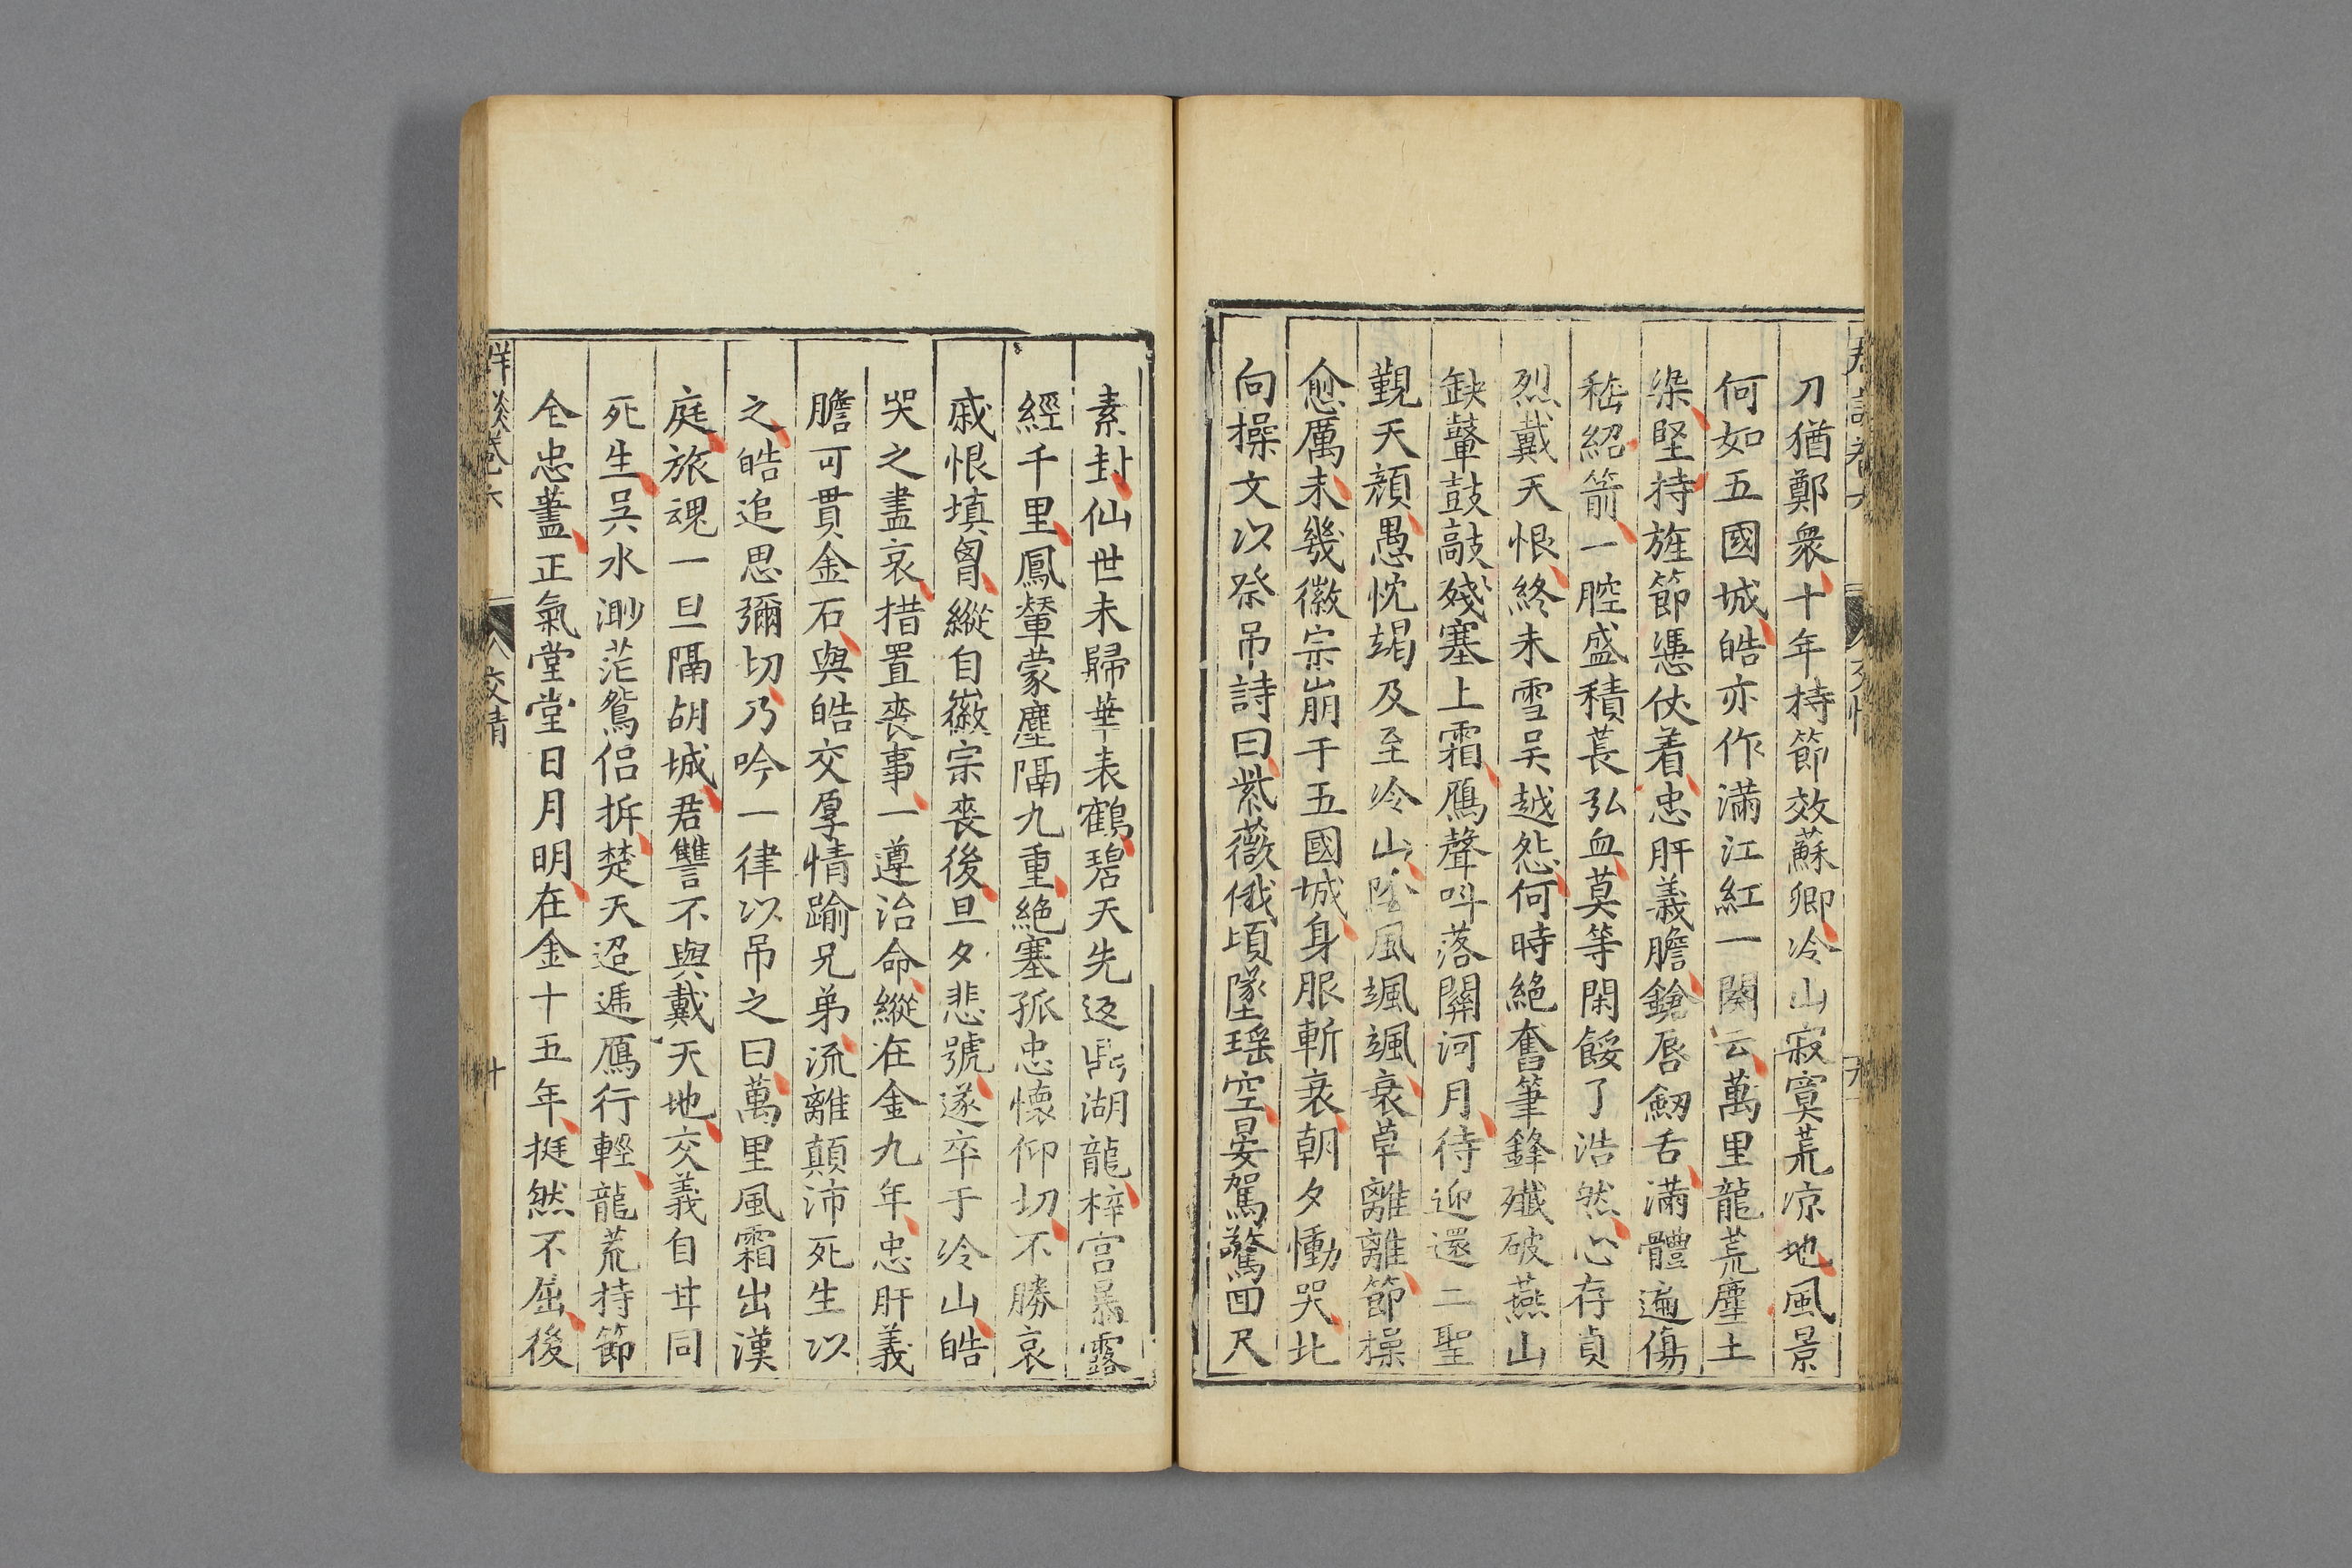 刀猶鄭衆十年持節效蘇卿冷山寂寞荒凉地風景
何如五國城皓亦作滿江紅一闋云萬里龍荒塵土
染堅持旌節慿仗着忠肝義膽鎗唇劒舌滿體遍傷
嵇紹箭一腔盛積萇弘血莫等閑餒了浩然心存貞
烈戴天恨終未雪吴越怨何時絕奮筆鋒殱破燕山
缺鼙鼓敲殘塞上霜鴈聲呌落關河月待迎還二聖
覲天顔愚忱竭及至冷山陰風颯颯衰草離離節操
愈厲未幾徽宗崩于五國城身服斬衰朝夕慟哭北
向操文以祭吊詩曰紫薇俄頃墜瑶空晏駕驚囬尺
素封仙世未歸華表鶴碧天先返鼎湖龍梓宫暴露
經千里鳳輦蒙塵隔九重絕塞孤忠懷仰切不勝哀
戚恨填胷縱自徽宗喪後旦夕悲號遂卒于冷山皓
哭之盡哀措置喪事一遵治命縱在金九年忠肝義
膽可貫金石與皓交厚情踰兄弟流離顛沛死生以
之皓追思彌切乃吟一律以吊之曰萬里風霜出漢
庭旅魂一旦隔胡城君讐不與戴天地交義自甘同
死生吳水渺茫鴛侣拆楚天迢遞鴈行輕龍荒持節
仝忠藎正氣堂堂日月明在金十五年挺然不屈後
群談卷六
交情
十